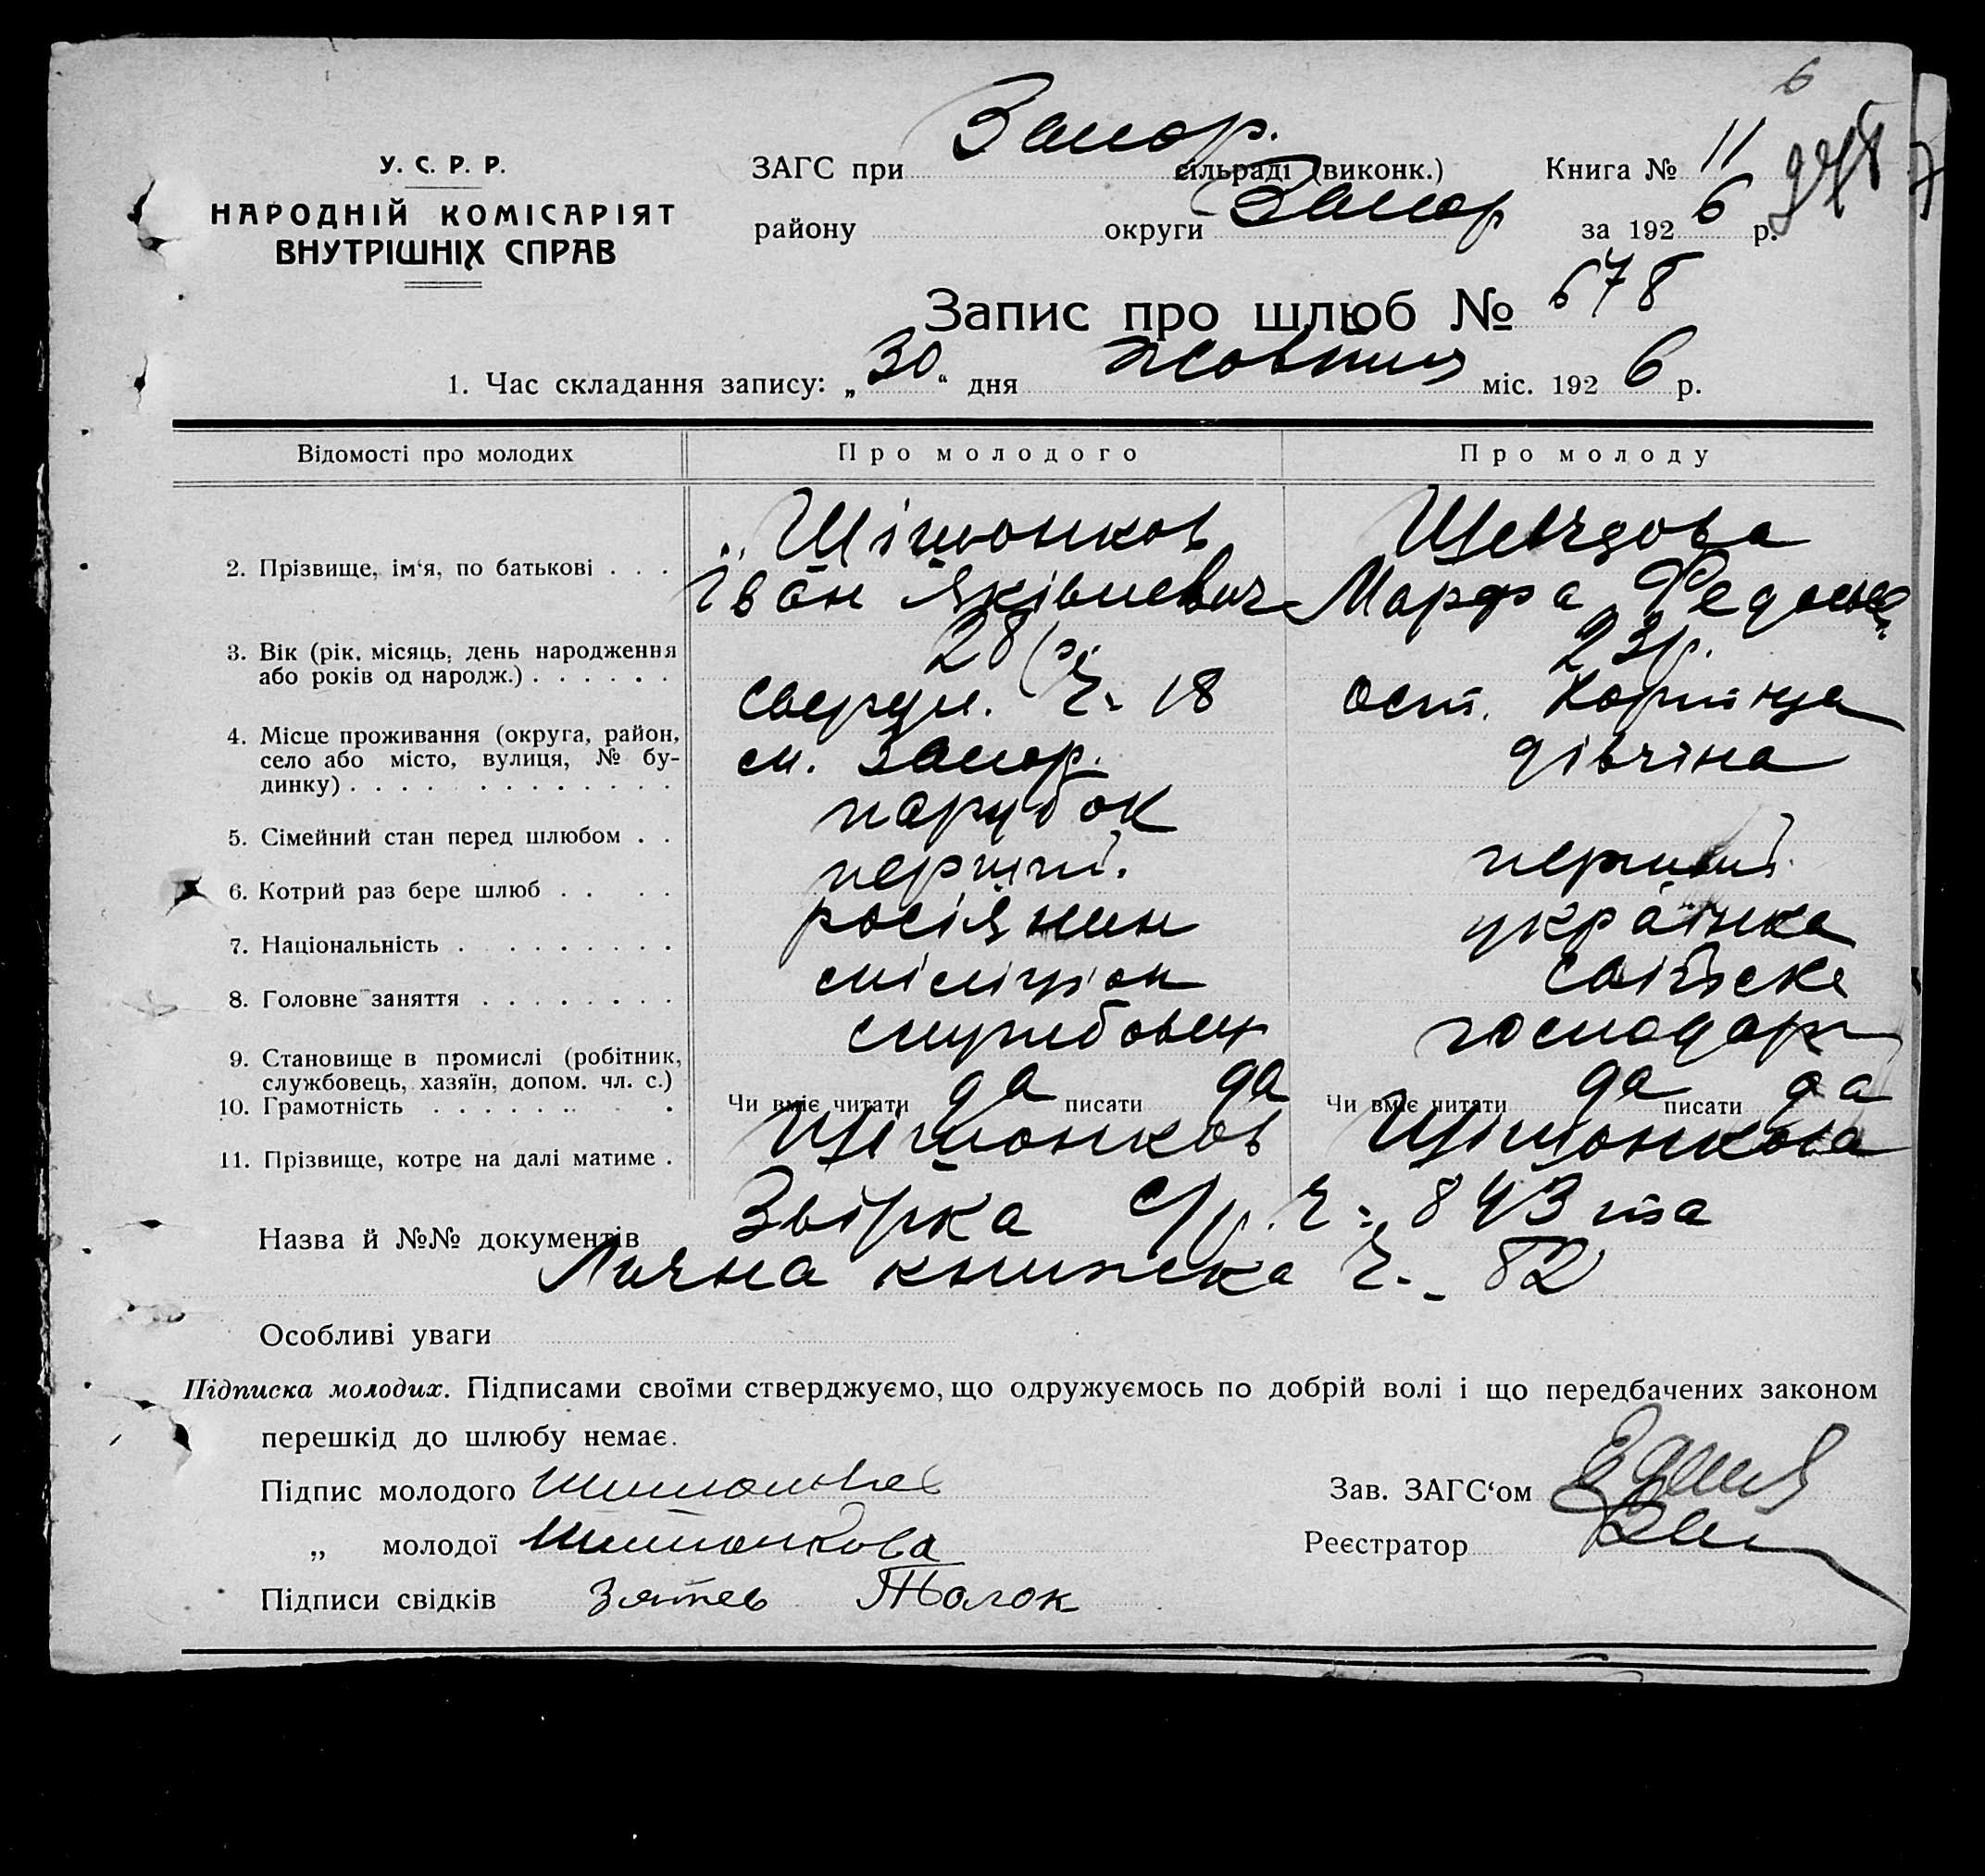 6
У. С. Р. Р.
НАРОДНІЙ КОМІСАРІЯТ
ВНУТРІШНІХ СПРАВ
ЗАГС при Запор. сільраді (виконк.) Книга № 11
району округи Запор за 1926 р.
Запис про шлюб № 678
1. Час складання запису: „30“ дня жовтня міс. 1926 р.
Відомості про молодих Про молодого Про молоду
2. Прізвище, ім‘я, по батькові . . . Шішонков Шевцова
Іван Яківлевич Марфа
3. Вік (рік, місяць, день народження або років од народж.) . . . . . . 28 р. 23 р.
4. Місце проживання (округа, район, село або місто, вулиця, № будинку) . . . . . . . . . . . . . Свердл. Ч. 18 ост. Хортиця
м. Запор.
5. Сімейний стан перед шлюбом . . парубок дівчіна
6. Котрий раз бере шлюб . . . . перший. перший
7. Національність . . . . . . . . росіянин українка
8. Головне заняття . . . . . . . . міліціон сільске
9. Становище в промислі (робітник, службовець, хазяїн, допом. чл. с.) службовец господар
10. Грамотність . . . . . . . . Чи вміє читати да писати да Чи вміє читати да писати да
11. Прізвище, котре на далі матиме . Шішонков Шішонкова
Назва й №№ документів Звірка Ч. 843 та
Лична книжка Ч. 82
Особливі уваги
Підписка молодих. Підписами своїми стверджуємо, що одружуємось по добрій волі і що передбачених законом
перешкід до шлюбу немає.
Підпис молодого Шишонков Зав. ЗАГС‘ом
„ молодої Шишонкова Реєстратор
Підписи свідків Зятев